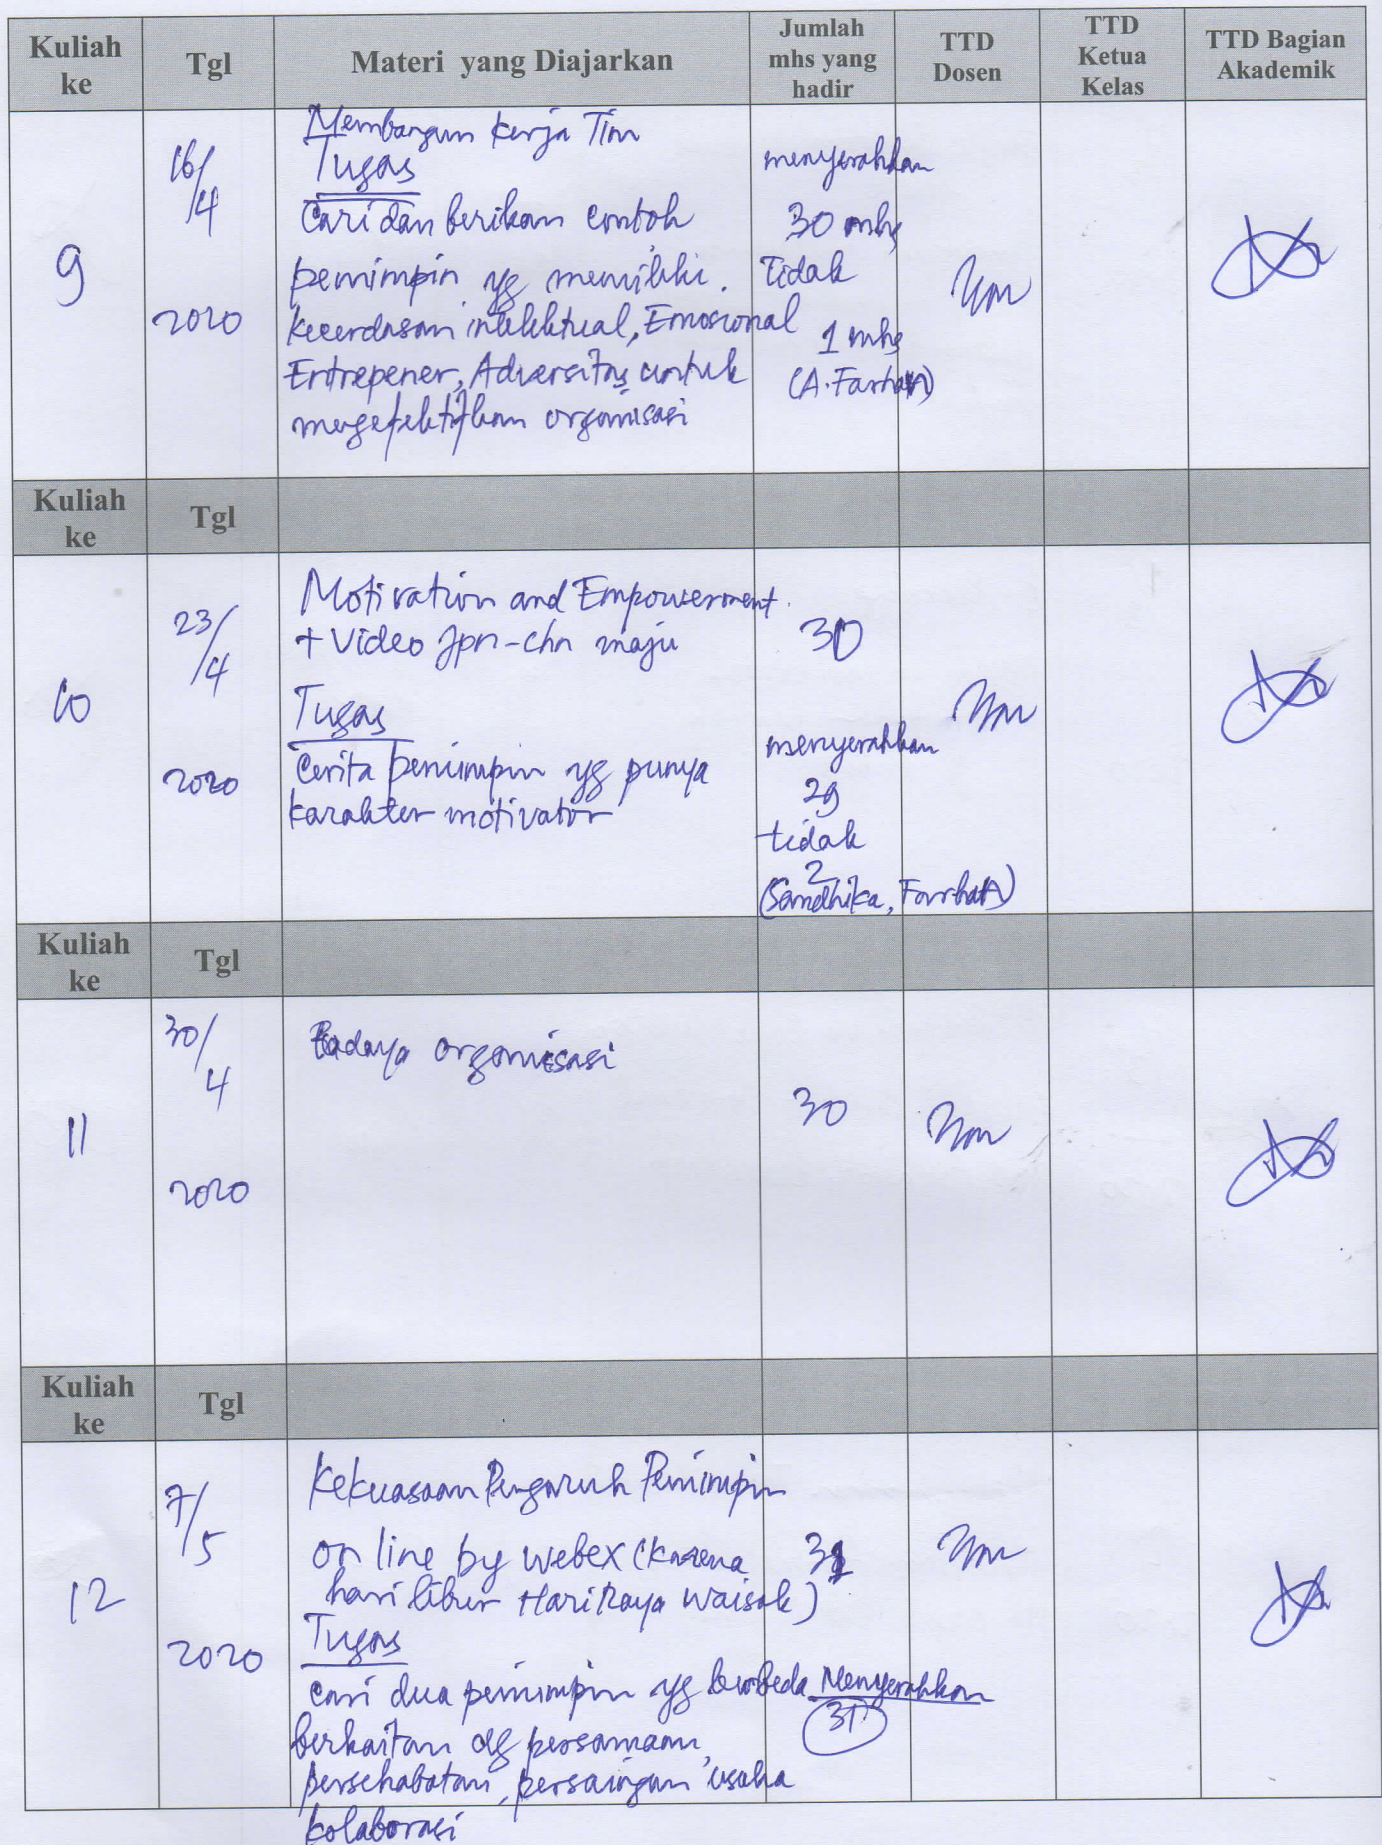 Kuliah ke | Tgl | Materi yang Diajarkan | Jumlah mhs yang hadir | TTD Dosen | TTD Ketua Kelas | TTD Bagian Akademik
9
16/4
2020
Membangun Kerja Tim
Tugas
Cari dan berikan contoh
pemimpin yg memiliki
kecerdasan intelektual, Emosional
Entrepener, Adversitas untuk
mengefektifkan organisasi
menyerahkan
30 mhs
Tidak
1 mhs
(A. Farhan)
Kuliah ke | Tgl
10
23/4
2020
Motivation and Empowerment
+ Video Jpn-chn maju
Tugas
Cerita pemimpin yg punya
karakter motivator
30
menyerahkan
29
tidak
2
(Sandhika, Farhan)
Kuliah ke | Tgl
11
30/4
2020
Budaya organisasi
30
Kuliah ke | Tgl
12
7/5
2020
Kekuasaan Pengaruh Pemimpin
on line by webex (karena
hari libur Hari Raya Waisak)
Tugas
cari dua pemimpin yg berbeda
berkaitan dg persamaan,
persehabatan, persaingan usaha
kolaborasi
31
Menyerahkan
31